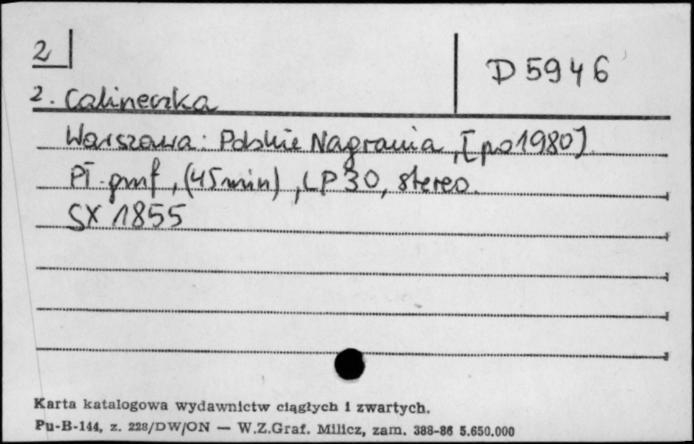 2
D 5946
2. Calineczka
Warszawa: Polskie Nagrania, [po 1980]
Pł. gmf, (45 min), LP 30, stereo.
SX 1855
Karta katalogowa wydawnictw ciągłych i zwartych.
Pu-B-144, z. 228/DW/ON — W.Z.Graf. Milicz, zam. 388-86 5.650.000